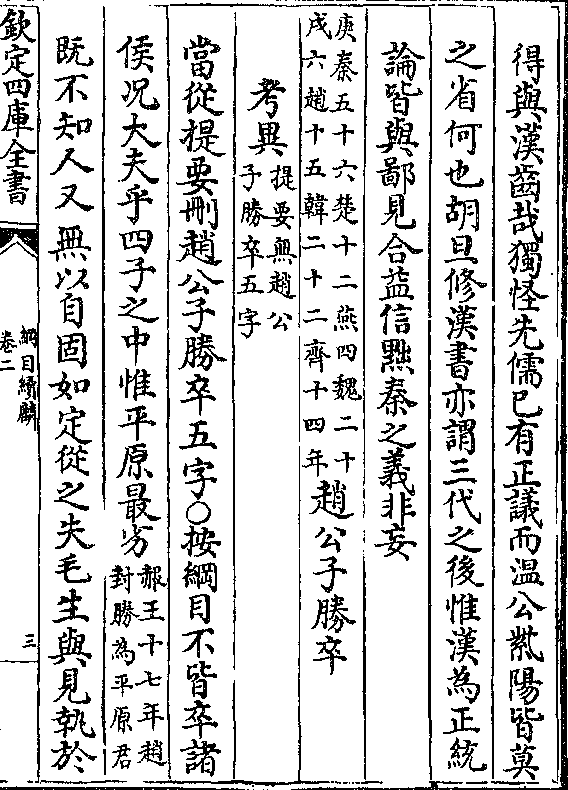 得與漢齒哉獨怪先儒已有正議而溫公紫陽皆莫
之省何也胡旦修漢書亦謂三代之後惟漢為正統
論皆與鄙見合益信黜秦之義非妄
庚秦五十六楚十二燕四魏二十
戌六趙十五韓二十二齊十四年
趙公子勝卒
考異
提要無趙公
子勝卒五字
當從提要刪趙公子勝卒五字○按綱目不皆卒諸
侯況大夫乎四子之中惟平原最劣
赧王十七年趙
封勝為平原君
既不知人又無以自固如定從之失毛生與見執於
欽定四庫全書
綱目續麟
卷二
三